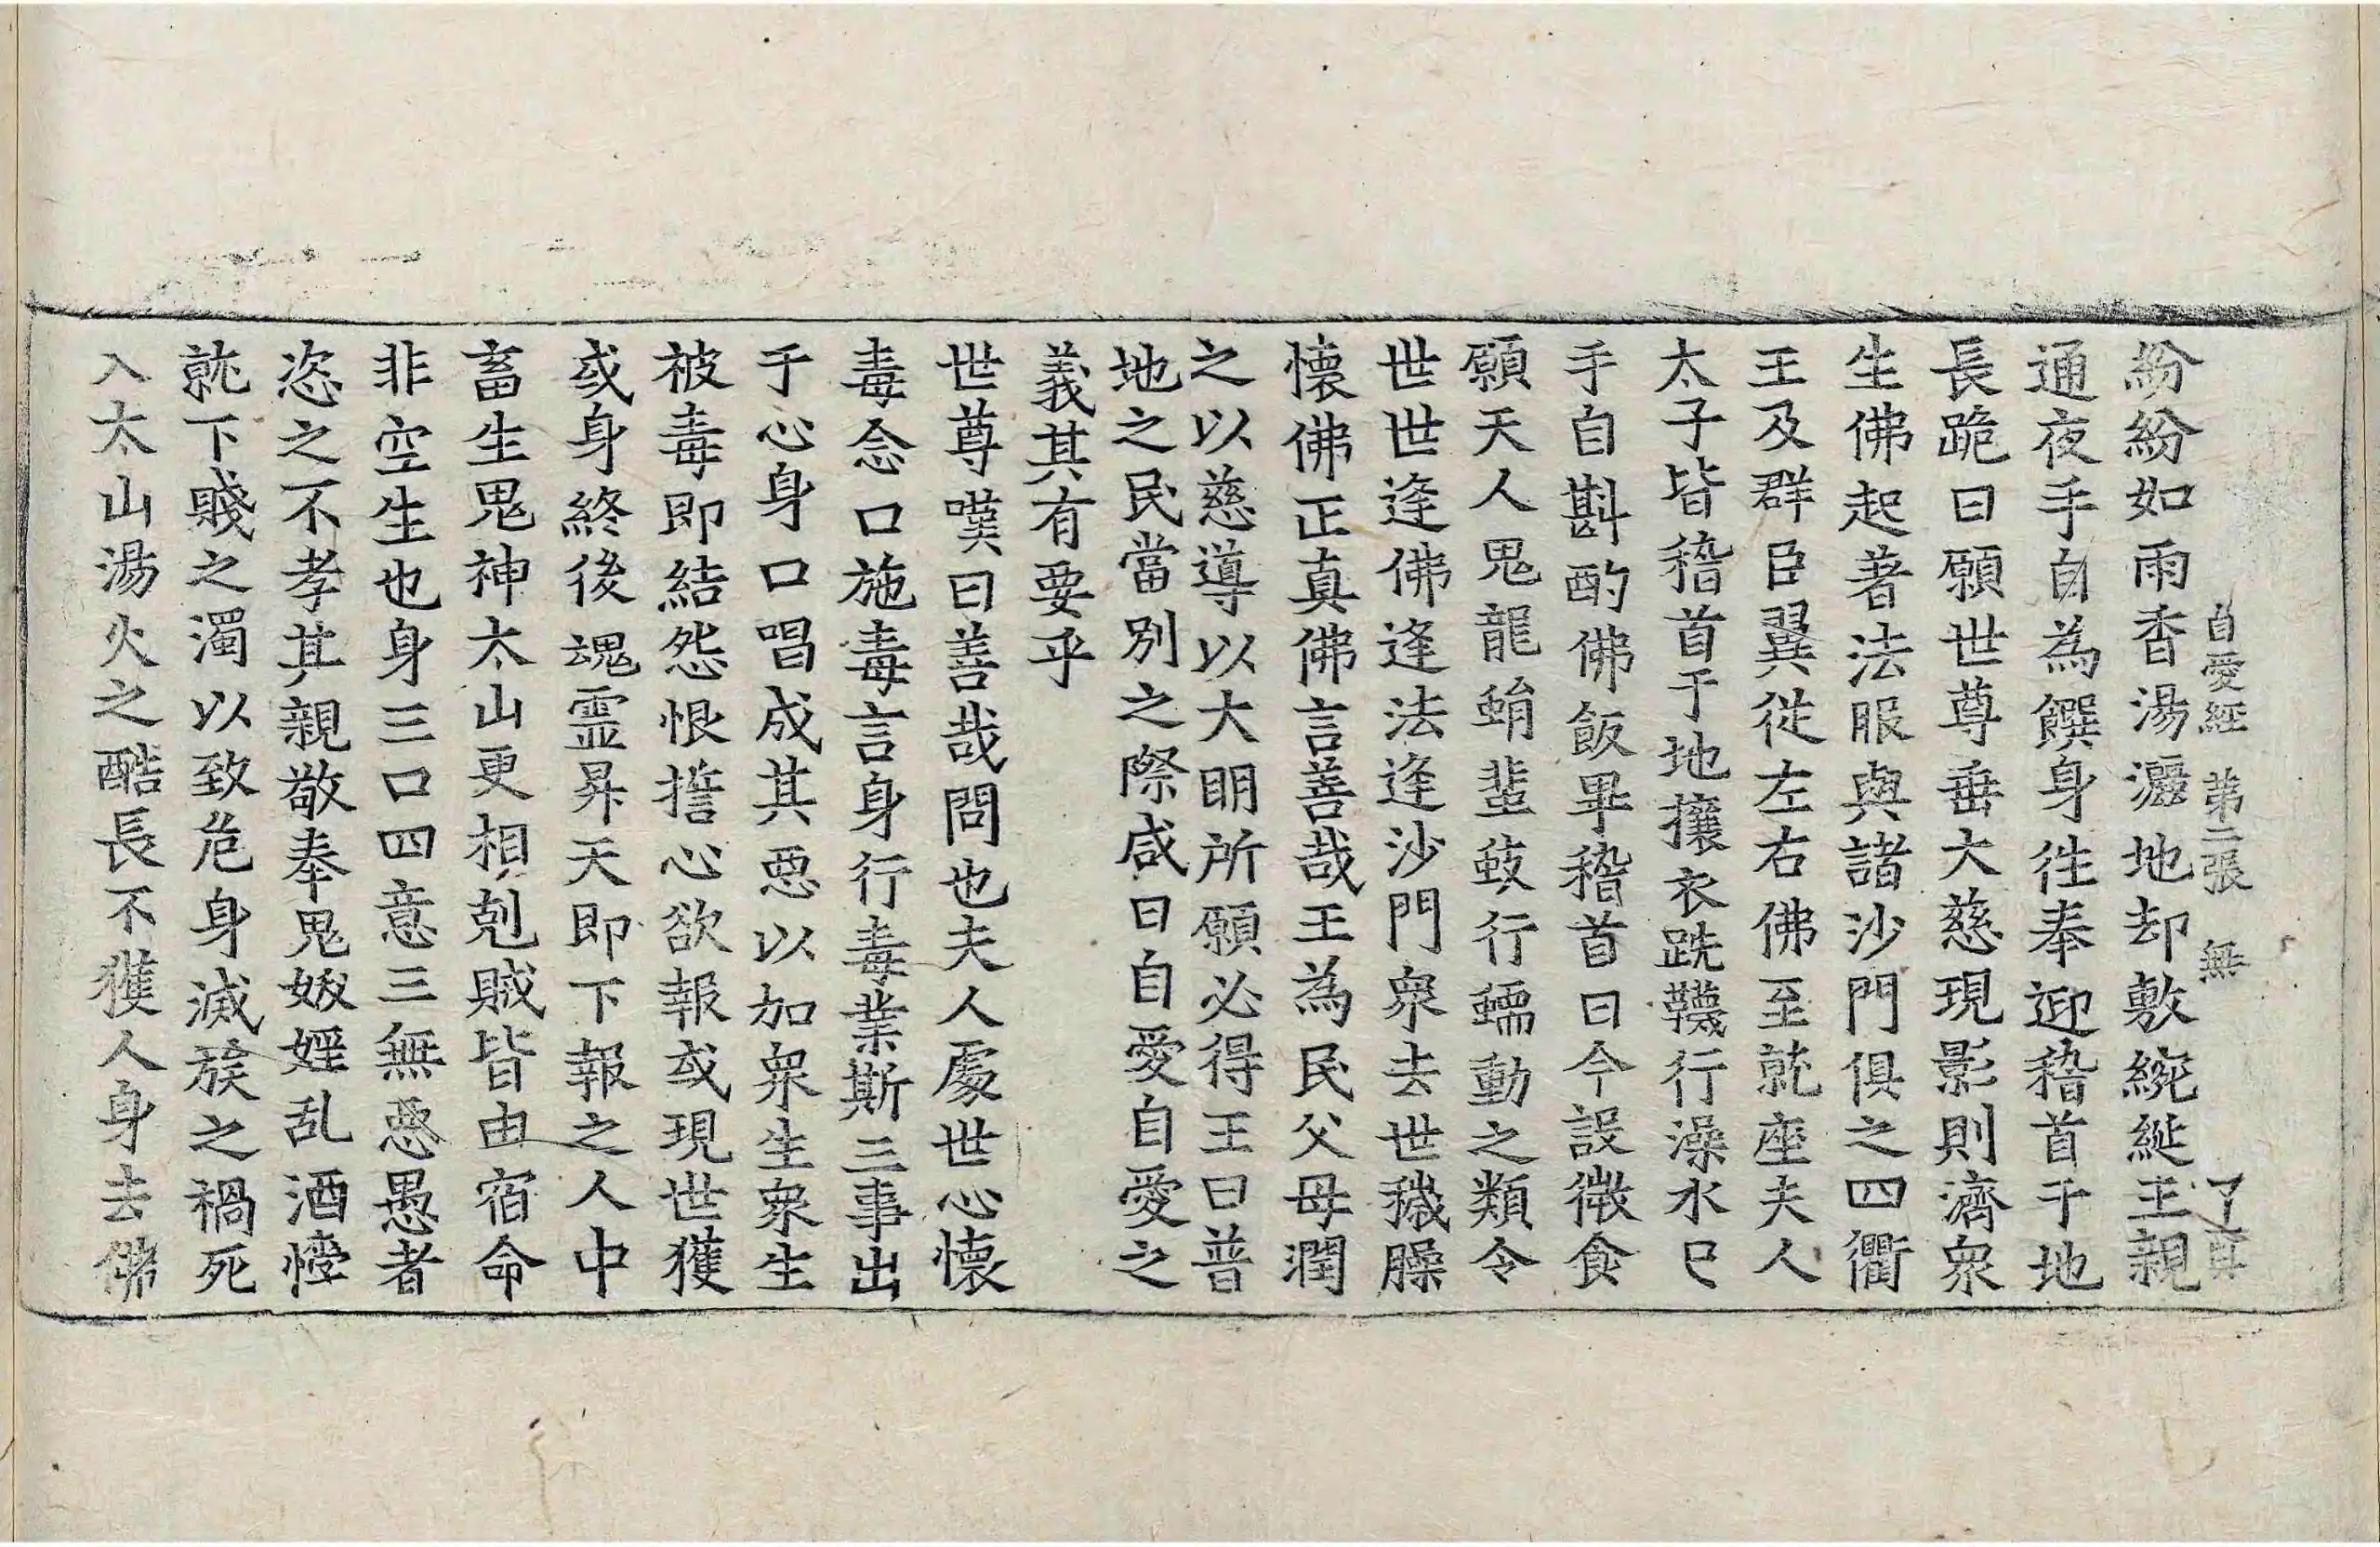 自愛經 第二張 無 了真
紛紛如雨香湯灑地却敷綩綖王親
通夜手自為饌身往奉迎稽首于地
長跪曰願世尊垂大慈現影則濟衆
生佛起著法服與諸沙門俱之四衢
王及群臣翼從左右佛至就座夫人
太子皆稽首于地攘衣跣韈行澡水已
手自斟酌佛飯畢稽首曰今設微食
願天人鬼龍蜎蜚蚑行蠕動之類令
世世逢佛逢法逢沙門衆去世穢臊
懷佛正真佛言善哉王為民父母潤
之以慈導以大明所願必得王曰普
地之民當別之際咸曰自愛自愛之
義其有要乎
世尊嘆曰善哉問也夫人處世心懷
毒念口施毒言身行毒業斯三事出
于心身口唱成其惡以加衆生衆生
被毒即結怨恨誓心欲報或現世獲
或身終後魂靈昇天即下報之人中
畜生鬼神太山更相剋賊皆由宿命
非空生也身三口四意三無惡愚者
恣之不孝其親敬奉鬼妖婬乱酒悖
就下賤之濁以致危身滅族之禍死
入太山湯火之酷長不獲人身去佛